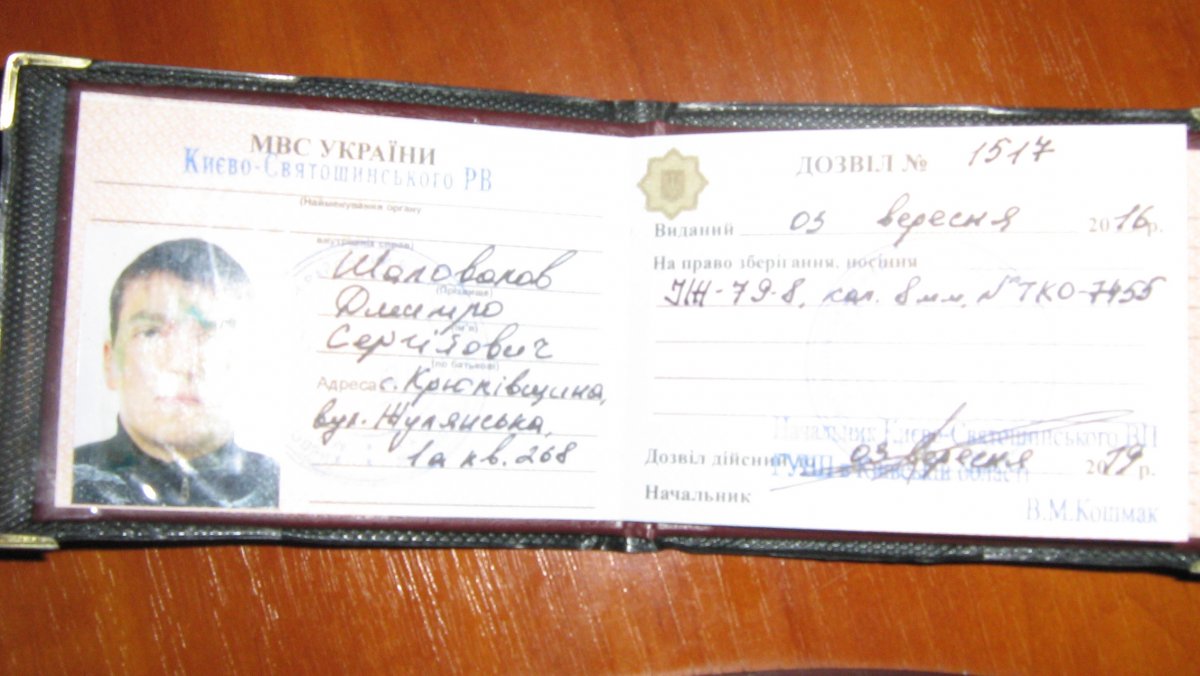 МВС УКРАЇНИ
Києво-Святошинського РВ
(Найменування органу
внутрішніх справ)
Шаповалов
(Прізвище)
Дмитро
(ім'я)
Сергійович
(по батькові)
Адреса с. Крюківщина,
вул. Жулянська,
1а кв. 268
ДОЗВІЛ № 1517
Виданий 03 вересня 2016 р.
На право зберігання, носіння
ІЖ-79-8, кал. 8 мм, № ТКО-7455
Начальник Києво-Святошинського ВП
Дозвіл дійсний 03 вересня 2019 р.
ГУНП в Київській області
Начальник
В.М.Кошмак